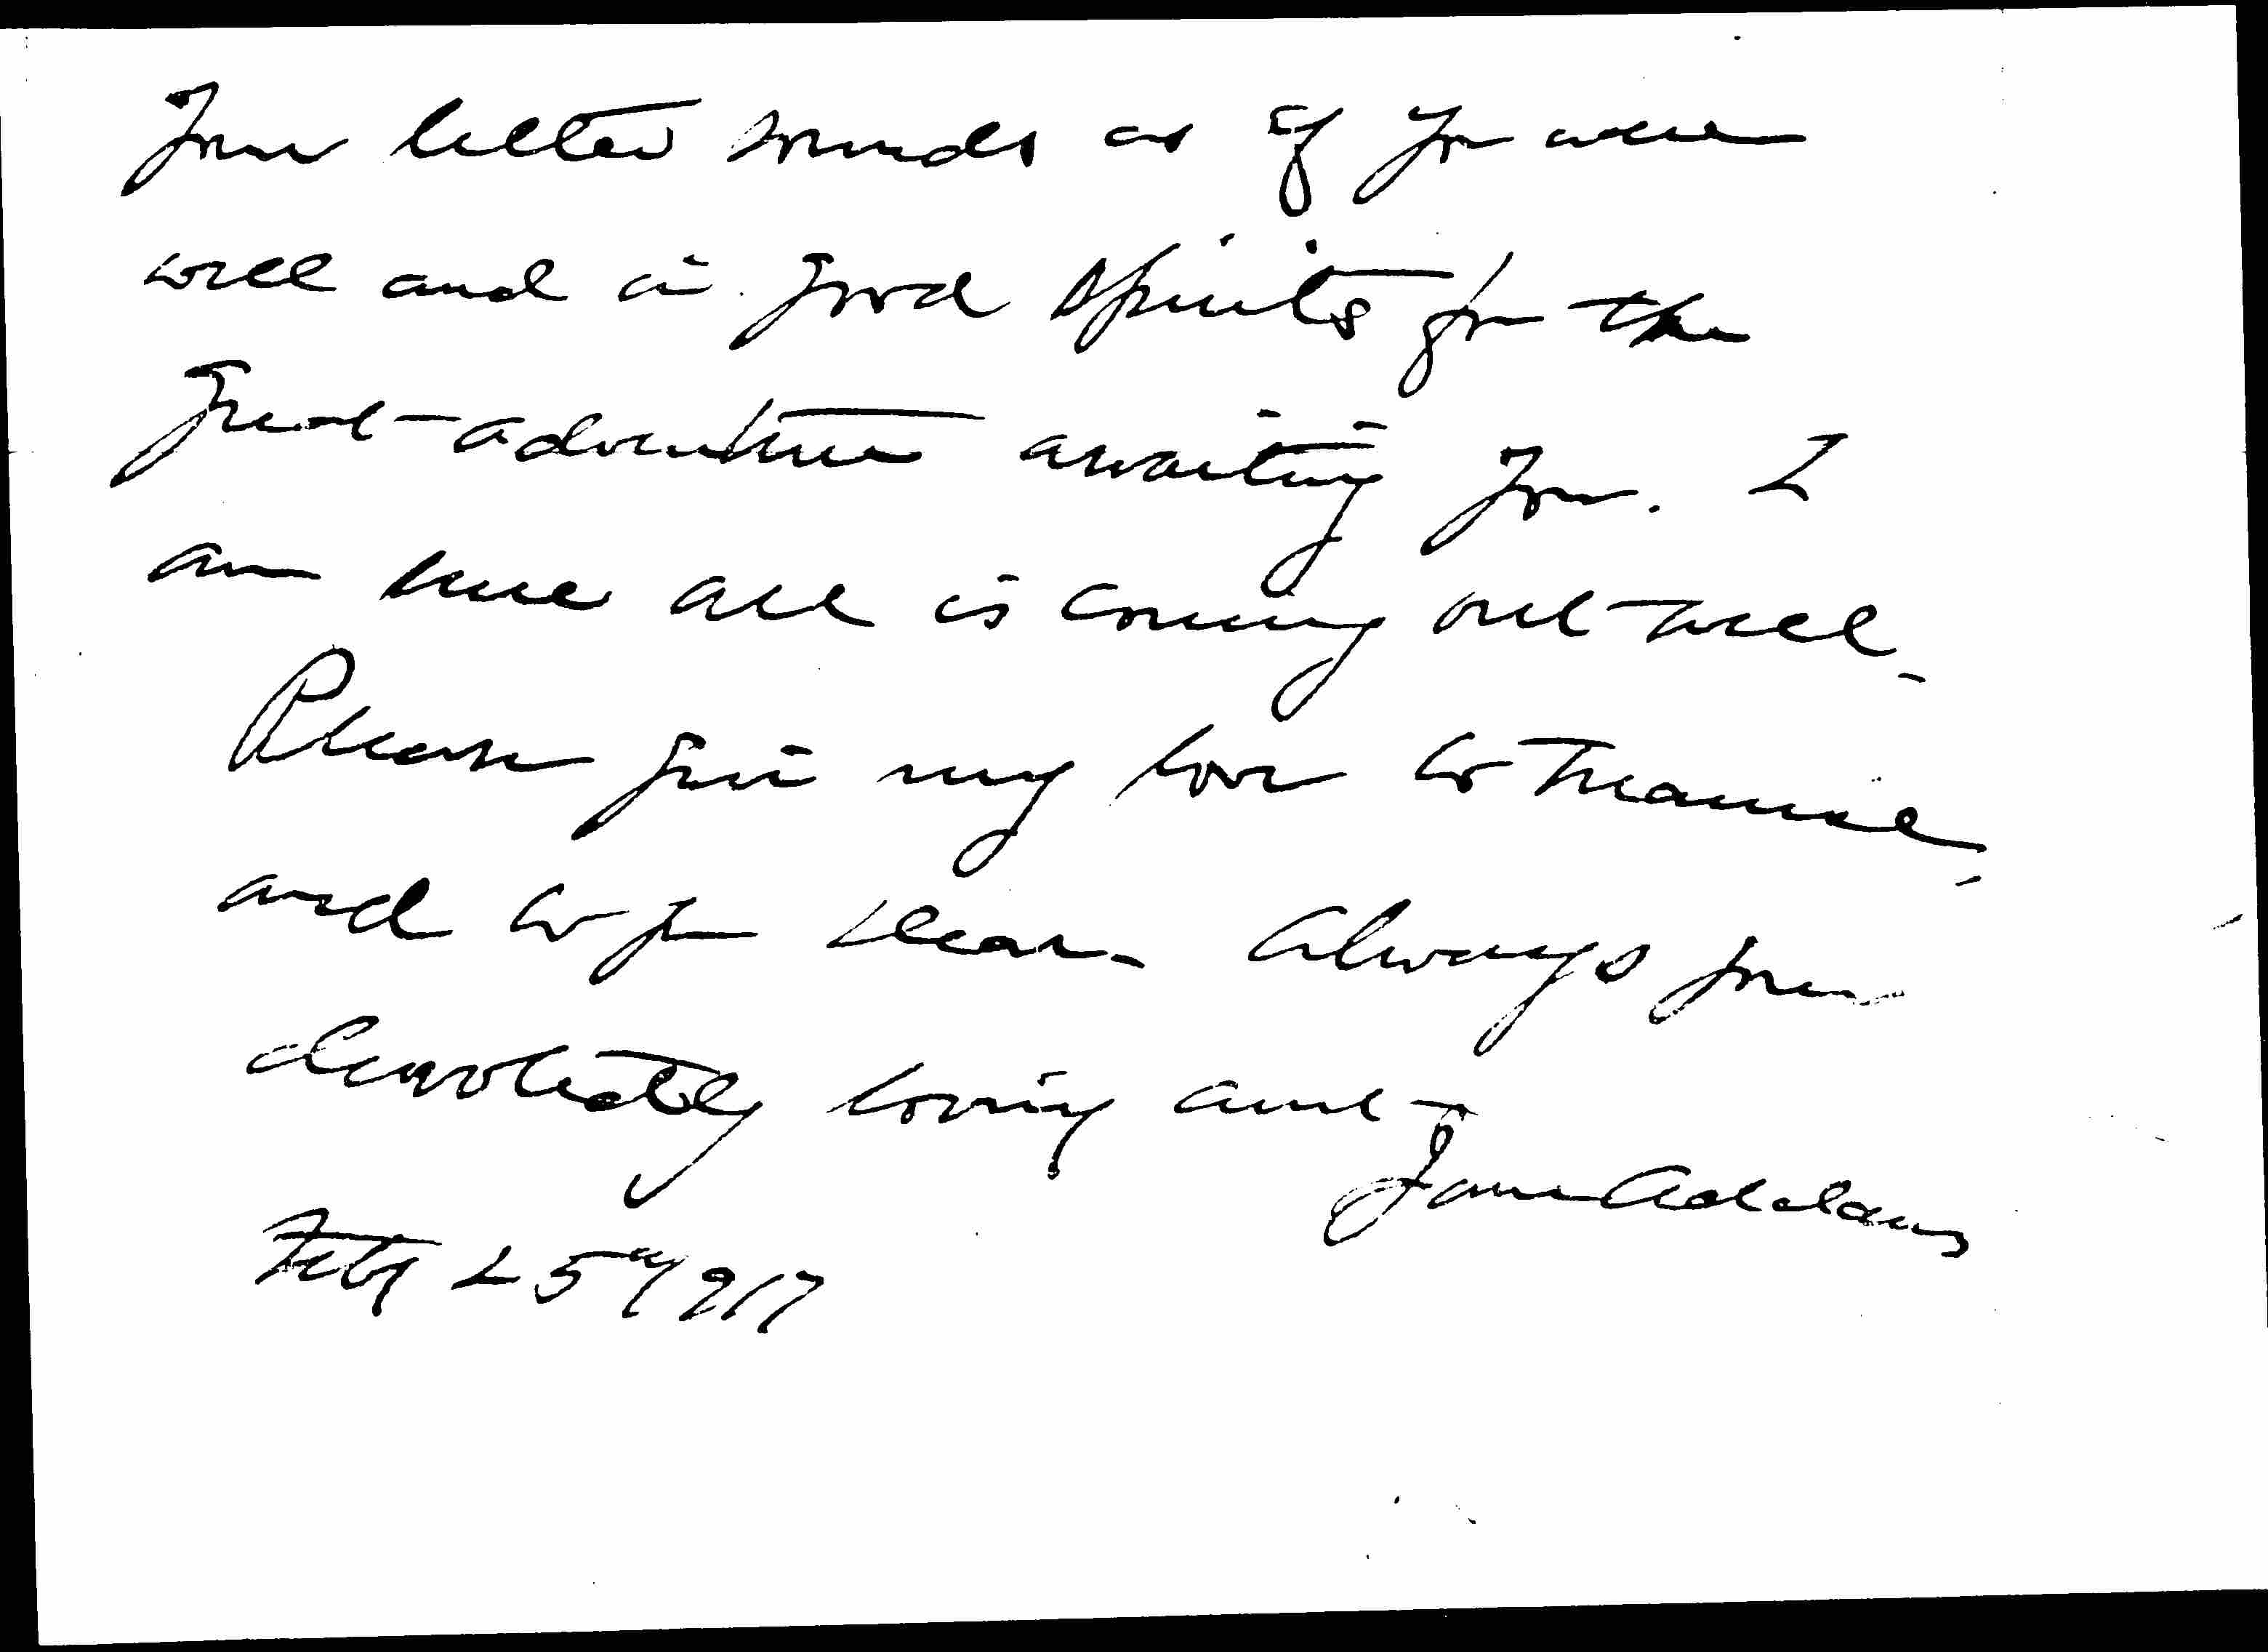 Your letter sounds as if you were
well and in good spirits for the
great adventure awaiting you. I
am sure all is coming out well.
Please give my love to Mamie
and to yr dear. Always your
devotedly loving aunt
Jane Addams
Feby 25" 1917